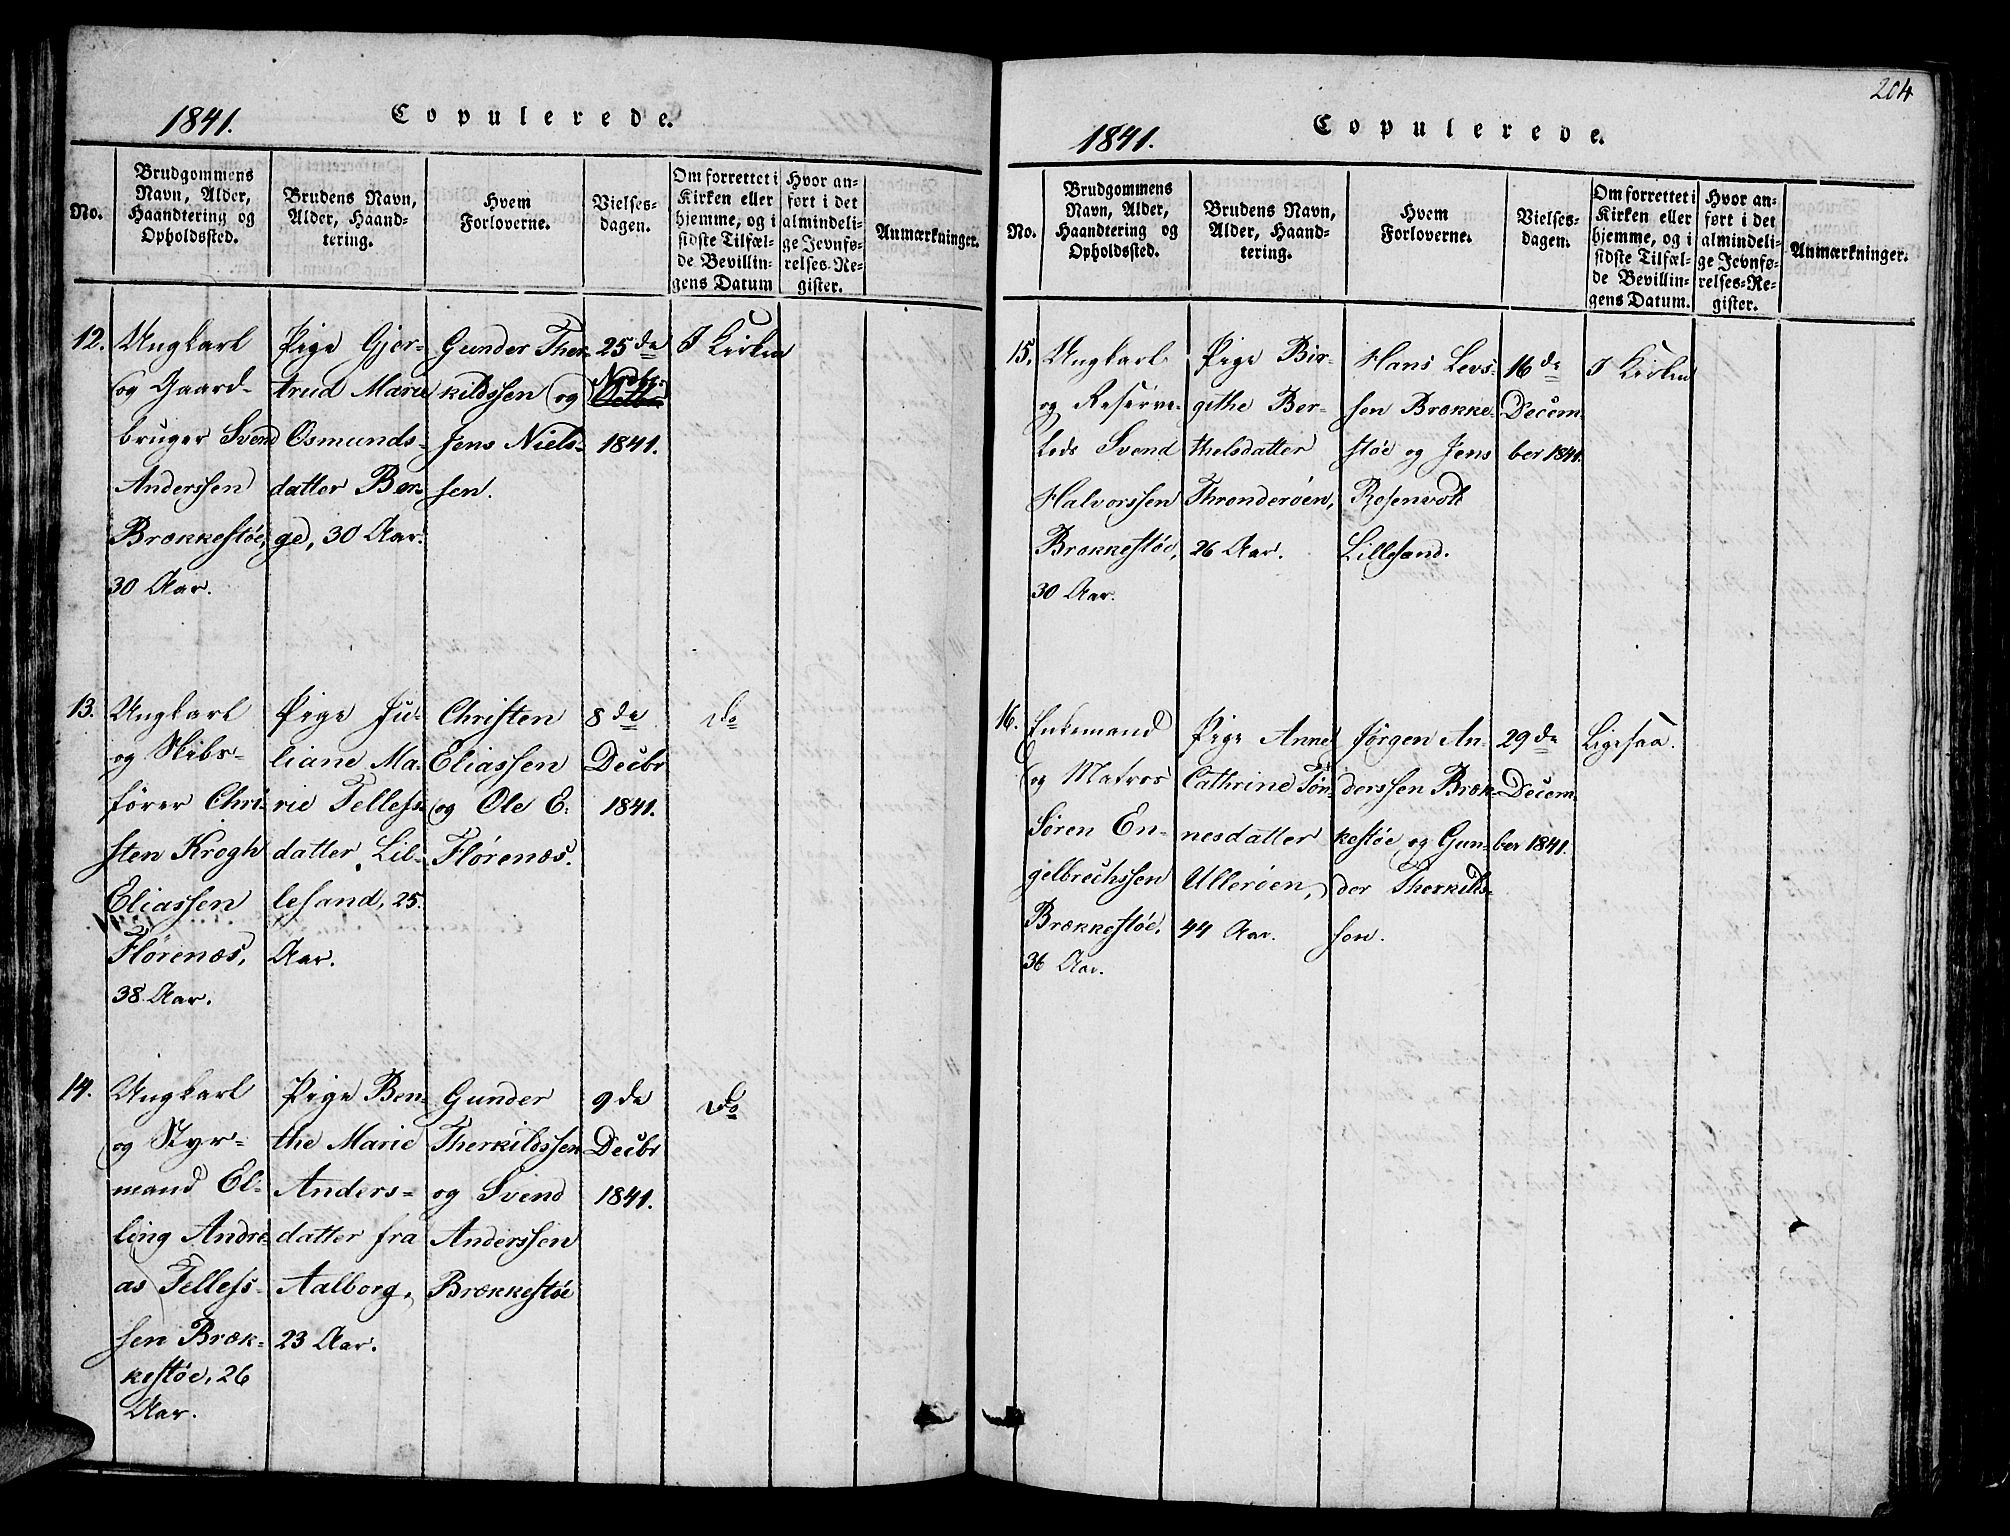 1841.
Copulerede.
No.
Brudgommens
Navn, Alder,
Haandtering og
Opholdssted.
Brudens Navn,
Alder, Haand-
tering.
Hvem
Forloverne.
Vielses-
dagen.
Om forrettet i
Kirken eller
hjemme, og i
sidste Tilfæl-
de Bevillin-
gens Datum
Hvor an-
ført i det
almindeli-
ge Jevnfø-
relses-Re-
gister.
Anmærkninger.
12.
Ungkarl
og Gaard-
bruger Svend
Anderssen
Brækkestøe,
30 Aar.
Pige Gjer-
trud Marie
Osmunds-
datter Bær-
ge, 30 Aar.
Gunder Ther-
kildssen og
Jens Niels-
sen.
25de
Novbr.
Octb
1841.
I Kirken
13.
Ungkarl
og Skibs-
fører Chri-
sten Krogh
Eliassen
Flørenæs,
38 Aar.
Pige Ju-
liane Ma-
rie Tellefs-
datter, Lil-
lesand, 25
Aar.
Christen
Eliassen
og Ole E.
Flørenæs.
8de
Decbr
1841.
Do
14.
Ungkarl
og Styr-
mand El-
ling Andre-
as Tellefs-
sen Bræk-
kestøe, 26
Aar.
Pige Ben-
the Marie
Anders-
datter fra
Aalborg,
23 Aar.
Gunder
Therkildssen
og Svend
Anderssen
Brækkestøe
9de
Decbr
1841.
Do
204
1841.
Copulerede.
No.
Brudgommens
Navn, Alder,
Haandtering og
Opholdssted.
Brudens Navn,
Alder, Haand-
tering.
Hvem
Forloverne.
Vielses-
dagen.
Om forrettet i
Kirken eller
hjemme, og i
sidste Tilfæl-
de Bevillin-
gens Datum.
Hvor an-
ført i det
almindeli-
ge Jevnfø-
relses-Re-
gister.
Anmærkninger.
15.
Ungkarl
og Reserve-
lods Svend
Halvorssen
Brækkestøe,
30 Aar.
Pige Bir-
githe Ber-
thelsdatter
Thronderøen,
26 Aar.
Hans Levs-
sen Brække-
støe og Jens
Rosenvold
Lillesand.
16de
Decem-
ber 1841.
I Kirken
16.
Enkemand
og Matros
Søren En-
gelbrechssen
Brækkestøe,
36 Aar.
Pige Anne
Cathrine Tøn-
nesdatter
Ullerøen,
44 Aar.
Jørgen An-
derssen Bræk-
kestøe og Gun-
der Therkilds-
sen.
29de
Decem-
ber 1841.
Ligesaa.